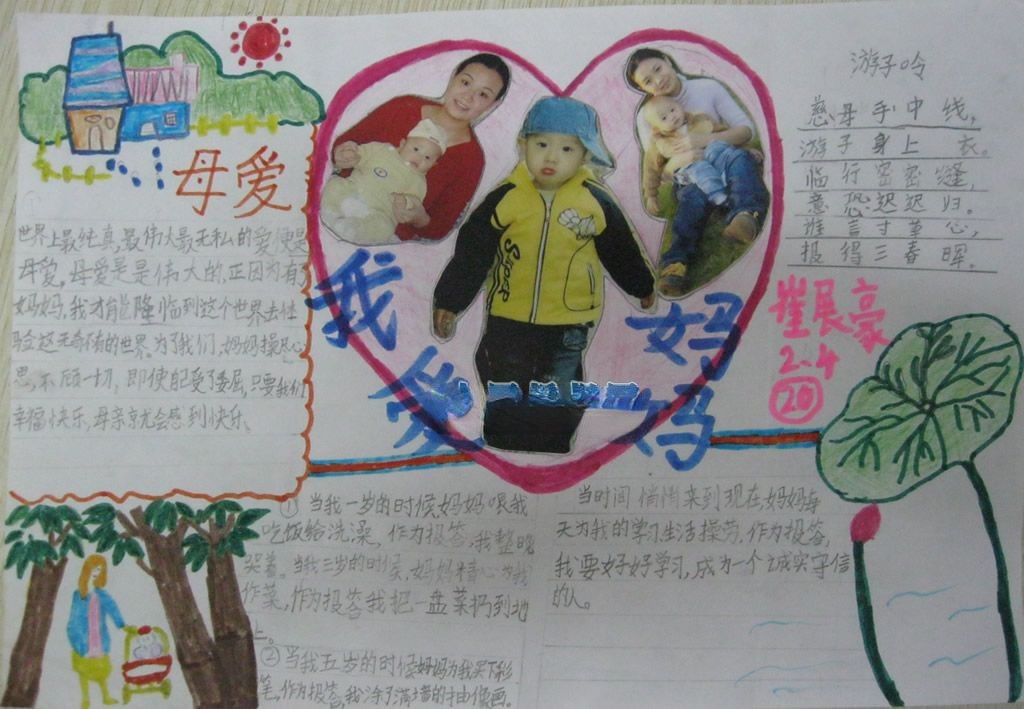 母爱
世界上最纯真,最伟大最无私的爱便是
母爱。母爱是是伟大的,正因为有
妈妈,我才能降临到这个世界去体
验这无奇不有的世界。为了我们,妈妈操尽心
思,不顾一切,即使自己受了委屈,只要我们
幸福快乐,母亲就会感到快乐。
我爱
妈妈
Super
游子吟
慈母手中线,
游子身上衣。
临行密密缝,
意恐迟迟归。
谁言寸草心,
报得三春晖。
崔展豪
2.4
20
①当我一岁的时候妈妈喂我
吃饭给洗澡,作为报答,我整晚
哭着。当我三岁的时候,妈妈精心为我
作菜,作为报答我把一盘菜扔到地
上。
②当我五岁的时候妈妈为我买下彩
笔,作为报答,我涂了满墙的抽像画。
当时间悄悄来到现在,妈妈每
天为我的学习生活操劳,作为报答,
我要好好学习,成为一个诚实守信
的人。